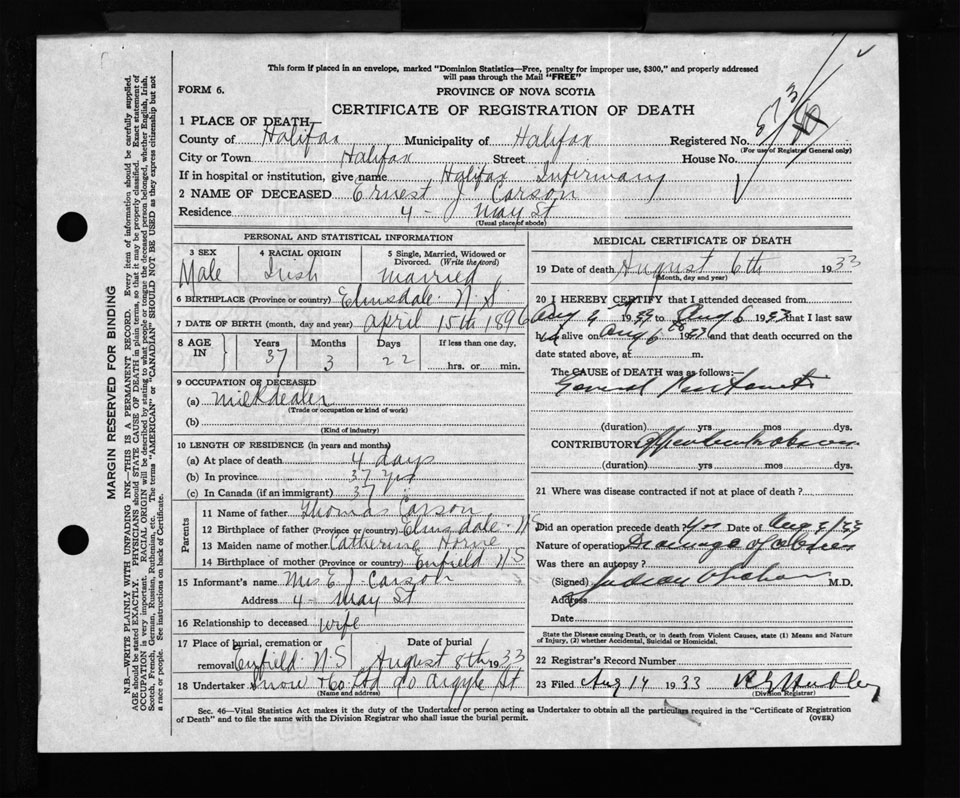 This form if placed in an envelope, marked "Dominion Statistics—Free, penalty for improper use, $300," and properly addressed
will pass through the Mail "FREE"
FORM 6.
PROVINCE OF NOVA SCOTIA
CERTIFICATE OF REGISTRATION OF DEATH
1 PLACE OF DEATH
County of Halifax Municipality of Halifax Registered No.
(For use of Registrar General only)
City or Town Halifax Street House No.
If in hospital or institution, give name Halifax Infirmary
2 NAME OF DECEASED Ernest J Carson
Residence 4 - May St
(Usual place of abode)
PERSONAL AND STATISTICAL INFORMATION
3 SEX 4 RACIAL ORIGIN 5 Single, Married, Widowed or
Divorced. (Write the word)
Male Irish married
6 BIRTHPLACE (Province or country) Elmsdale N.S.
7 DATE OF BIRTH (month, day and year) April 15th 1896
8 AGE IN Years Months Days If less than one day,
37 3 22 hrs. or min.
9 OCCUPATION OF DECEASED
(a) milkdealer
(Trade or occupation or kind of work)
(b)
(Kind of industry)
10 LENGTH OF RESIDENCE (in years and months)
(a) At place of death 4 days
(b) In province 37 yrs
(c) In Canada (if an immigrant) 37
Parents
11 Name of father Thomas Carson
12 Birthplace of father (Province or country) Elmsdale N.S
13 Maiden name of mother Catherine Horne
14 Birthplace of mother (Province or country) Enfield N S
15 Informant's name Mrs E J Carson
Address 4 - May St
16 Relationship to deceased wife
17 Place of burial, cremation or Date of burial
removal Enfield N S August 8th 1933
18 Undertaker Snow & Co Ltd 90 Argyle St
(Name and address)
MEDICAL CERTIFICATE OF DEATH
19 Date of death August 6th 1933
(Month, day and year)
20 I HEREBY CERTIFY that I attended deceased from
Aug 1933 to Aug 6 1933 that I last saw
h alive on Aug 6 1933 and that death occurred on the date
stated above, at m.
The CAUSE of DEATH was as follows:—
General
(duration) yrs mos. dys.
CONTRIBUTORY
(duration) yrs mos. dys.
21 Where was disease contracted if not at place of death?
Did an operation precede death? Yes Date of Aug 1933
Nature of operation Drainage of abscess
Was there an autopsy?
(Signed) M.D.
Address
Date
State the Disease causing Death, or in death from Violent Causes, state (1) Means and Nature
of Injury, (2) whether Accidental, Suicidal or Homicidal.
22 Registrar's Record Number
23 Filed Aug 14 1933
(Division Registrar)
Sec. 46—Vital Statistics Act makes it the duty of the Undertaker or person acting as Undertaker to obtain all the particulars required in the "Certificate of Registration
of Death" and to file the same with the Division Registrar who shall issue the burial permit.
(OVER)
MARGIN RESERVED FOR BINDING
N.B.—WRITE PLAINLY WITH UNFADING INK—THIS IS A PERMANENT RECORD. Every item of information should be carefully supplied.
AGE should be stated EXACTLY. PHYSICIANS should STATE CAUSE OF DEATH in plain terms, so that it may be properly classified. Exact statement of
OCCUPATION is very important. RACIAL ORIGIN will be described by stating to what people or tongue the deceased person belonged, whether English, Irish,
Scotch, French, German, Russian, Ruthenian, etc. The terms "AMERICAN" or "CANADIAN" SHOULD NOT BE USED as they express citizenship but not
a race or people. See instructions on back of Certificate.